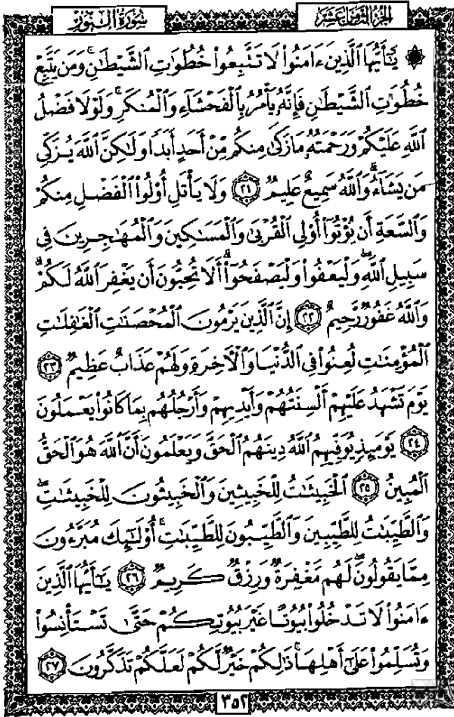 الجزء الثامن عشر
سورة النور
۞ يَٰٓأَيُّهَا ٱلَّذِينَ ءَامَنُوا۟ لَا تَتَّبِعُوا۟ خُطُوَٰتِ ٱلشَّيْطَٰنِ ۚ وَمَن يَتَّبِعْ
خُطُوَٰتِ ٱلشَّيْطَٰنِ فَإِنَّهُۥ يَأْمُرُ بِٱلْفَحْشَآءِ وَٱلْمُنكَرِ ۚ وَلَوْلَا فَضْلُ
ٱللَّهِ عَلَيْكُمْ وَرَحْمَتُهُۥ مَا زَكَىٰ مِنكُم مِّنْ أَحَدٍ أَبَدًا وَلَٰكِنَّ ٱللَّهَ يُزَكِّى
مَن يَشَآءُ ۗ وَٱللَّهُ سَمِيعٌ عَلِيمٌ ٢١ وَلَا يَأْتَلِ أُو۟لُوا۟ ٱلْفَضْلِ مِنكُمْ
وَٱلسَّعَةِ أَن يُؤْتُوٓا۟ أُو۟لِى ٱلْقُرْبَىٰ وَٱلْمَسَٰكِينَ وَٱلْمُهَٰجِرِينَ فِى
سَبِيلِ ٱللَّهِ ۖ وَلْيَعْفُوا۟ وَلْيَصْفَحُوٓا۟ ۗ أَلَا تُحِبُّونَ أَن يَغْفِرَ ٱللَّهُ لَكُمْ ۗ
وَٱللَّهُ غَفُورٌ رَّحِيمٌ ٢٢ إِنَّ ٱلَّذِينَ يَرْمُونَ ٱلْمُحْصَنَٰتِ ٱلْغَٰفِلَٰتِ
ٱلْمُؤْمِنَٰتِ لُعِنُوا۟ فِى ٱلدُّنْيَا وَٱلْءَاخِرَةِ وَلَهُمْ عَذَابٌ عَظِيمٌ ٢٣
يَوْمَ تَشْهَدُ عَلَيْهِمْ أَلْسِنَتُهُمْ وَأَيْدِيهِمْ وَأَرْجُلُهُم بِمَا كَانُوا۟ يَعْمَلُونَ
٢٤ يَوْمَئِذٍ يُوَفِّيهِمُ ٱللَّهُ دِينَهُمُ ٱلْحَقَّ وَيَعْلَمُونَ أَنَّ ٱللَّهَ هُوَ ٱلْحَقُّ
ٱلْمُبِينُ ٢٥ ٱلْخَبِيثَٰتُ لِلْخَبِيثِينَ وَٱلْخَبِيثُونَ لِلْخَبِيثَٰتِ ۖ
وَٱلطَّيِّبَٰتُ لِلطَّيِّبِينَ وَٱلطَّيِّبُونَ لِلطَّيِّبَٰتِ ۚ أُو۟لَٰٓئِكَ مُبَرَّءُونَ
مِمَّا يَقُولُونَ ۖ لَهُم مَّغْفِرَةٌ وَرِزْقٌ كَرِيمٌ ٢٦ يَٰٓأَيُّهَا ٱلَّذِينَ
ءَامَنُوا۟ لَا تَدْخُلُوا۟ بُيُوتًا غَيْرَ بُيُوتِكُمْ حَتَّىٰ تَسْتَأْنِسُوا۟
وَتُسَلِّمُوا۟ عَلَىٰٓ أَهْلِهَا ۚ ذَٰلِكُمْ خَيْرٌ لَّكُمْ لَعَلَّكُمْ تَذَكَّرُونَ ٢٧
٣٥٢